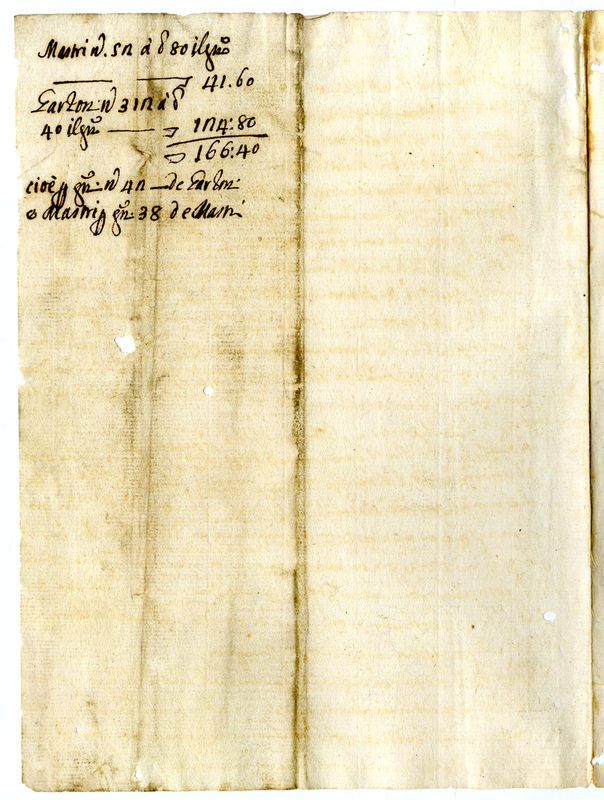 Mastri n°. 52 à 80 il gno
41.60
Garzon n° 312 à
40 il gno 124:80
166:40
cioè p gni n° 42 — de Garzon:
e Mastri p gni 38 de Mastri